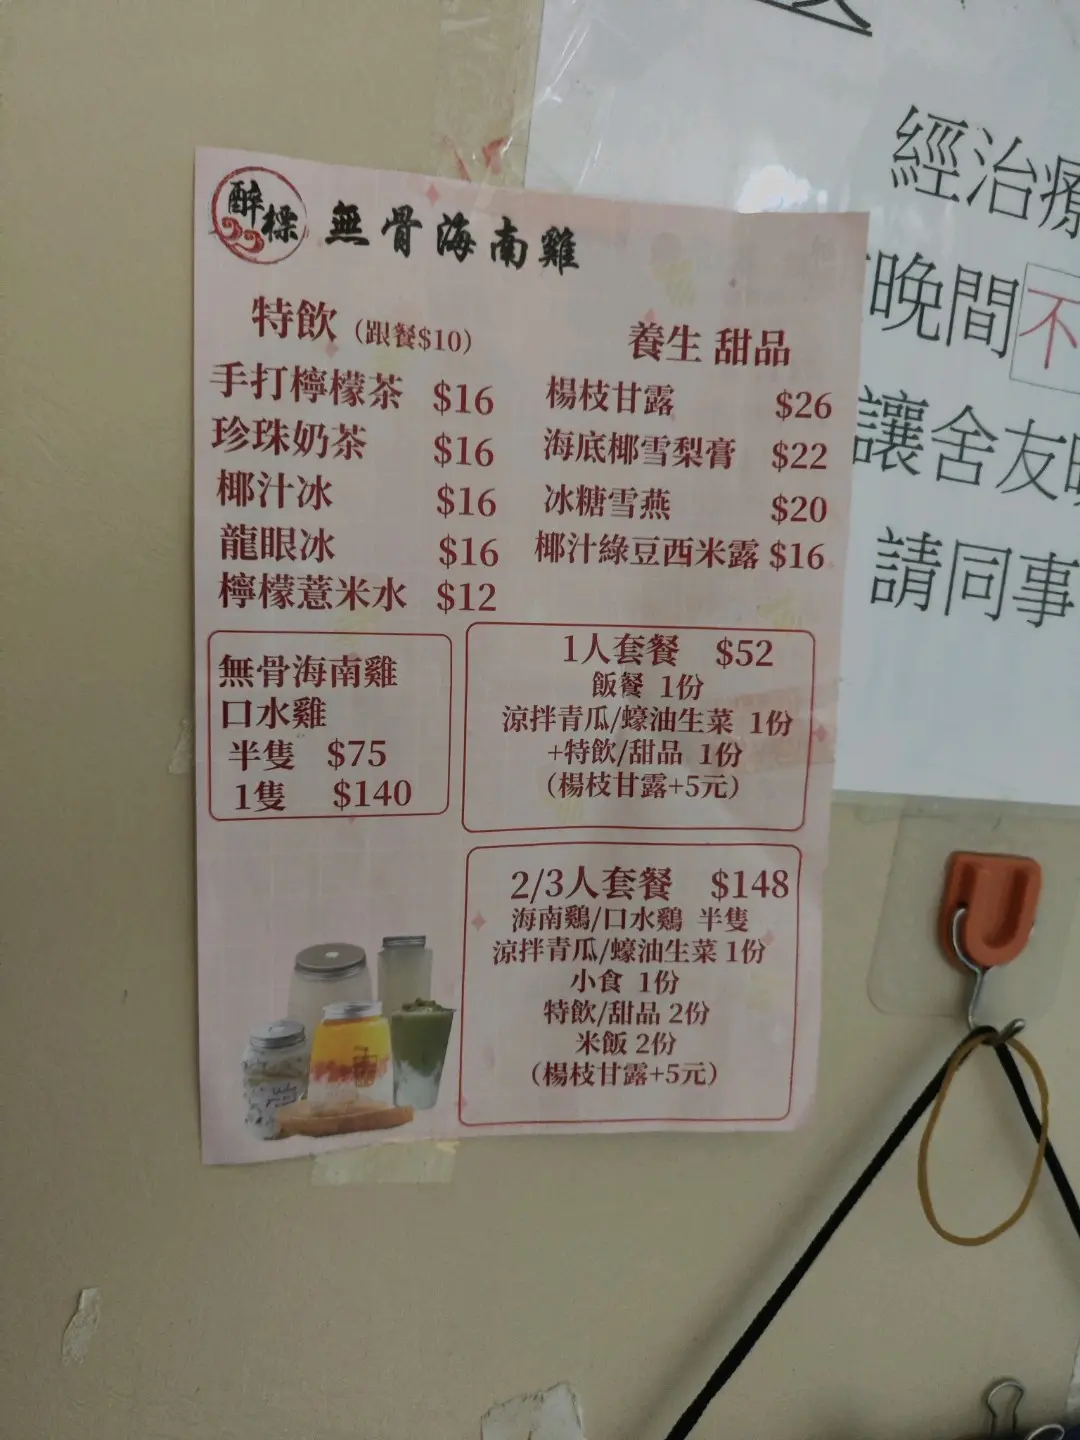 醉樑
無骨海南雞
特飲（跟餐$10）
手打檸檬茶 $16
珍珠奶茶 $16
椰汁冰 $16
龍眼冰 $16
檸檬薏米水 $12
養生 甜品
楊枝甘露 $26
海底椰雪梨膏 $22
冰糖雪燕 $20
椰汁綠豆西米露 $16
無骨海南雞
口水雞
半隻 $75
1隻 $140
1人套餐 $52
飯餐 1份
涼拌青瓜/蠔油生菜 1份
+特飲/甜品 1份
（楊枝甘露+5元）
2/3人套餐 $148
海南鷄/口水鷄 半隻
涼拌青瓜/蠔油生菜 1份
小食 1份
特飲/甜品 2份
米飯 2份
（楊枝甘露+5元）
經治療
晚間不
讓舍友
請同事